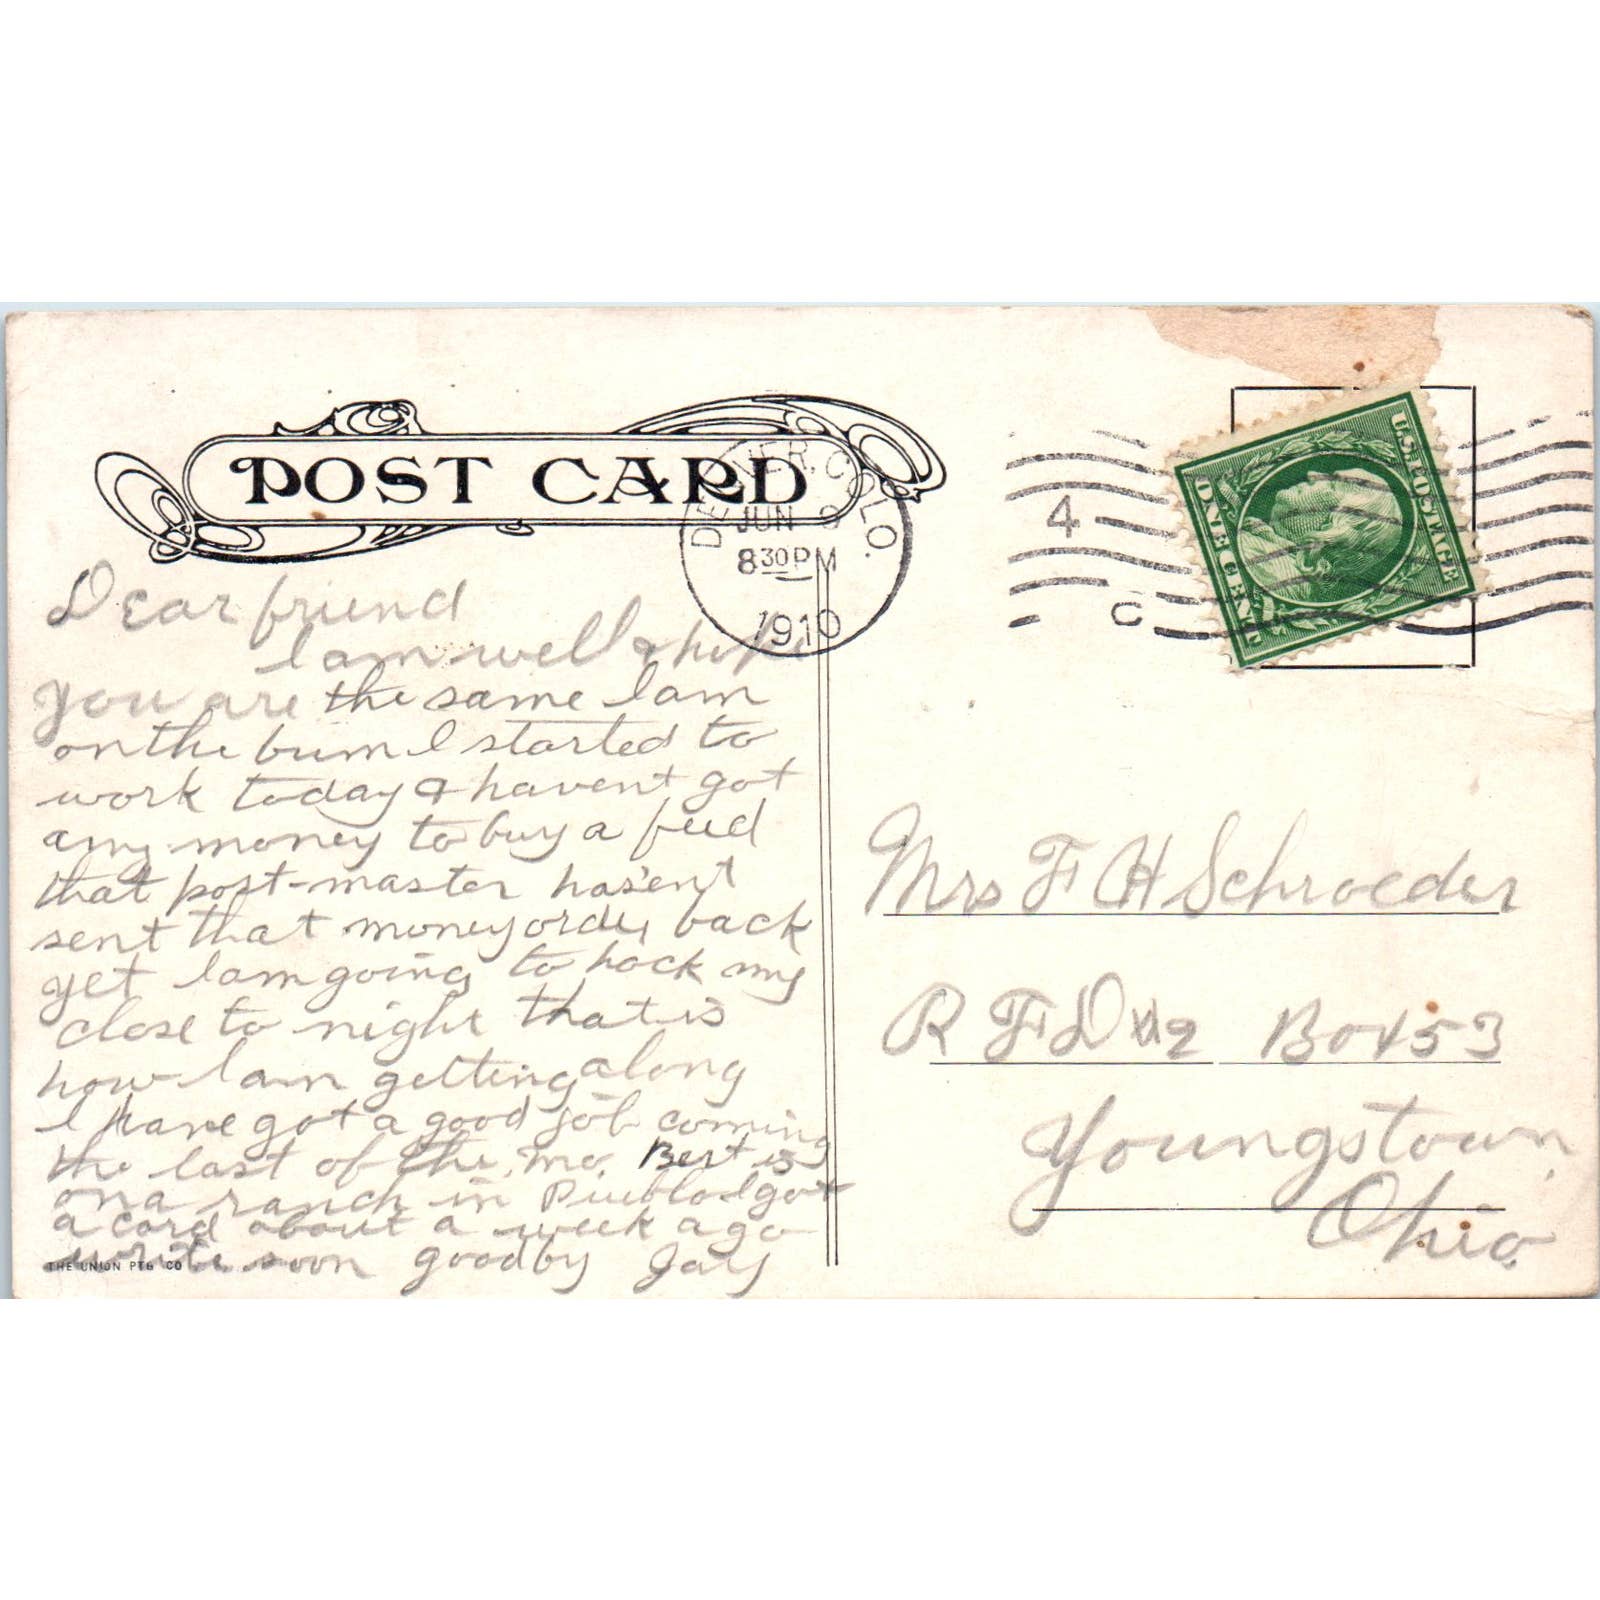 POST CARD
DENVER, COLO.
JUN 9
8 30 PM
1910
4
C
U.S. POSTAGE
ONE CENT
Dear friend
I am well & hope
you are the same I am
on the bum I started to
work today & havent got
any money to buy a feed
that post-master hasent
sent that money order back
yet I am going to hock my
close to night that is
how I am getting along
I have got a good job coming
the last of the mo. Bert is
on a ranch in Pueblo I got
a card about a week ago
write soon goodby Jay
THE UNION PTG CO
Mrs F H Schroeder
R F D #2 Box 53
Youngstown
Ohio.